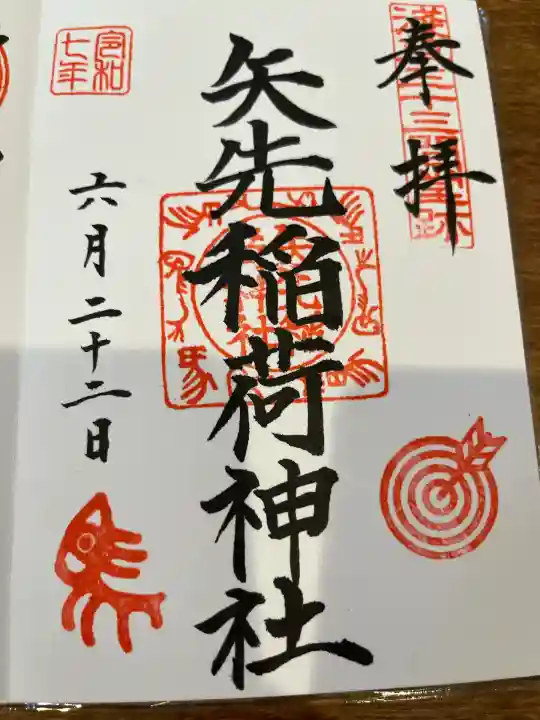 奉拝
矢先稲荷神社
令和
七年
六月二十二日
馬